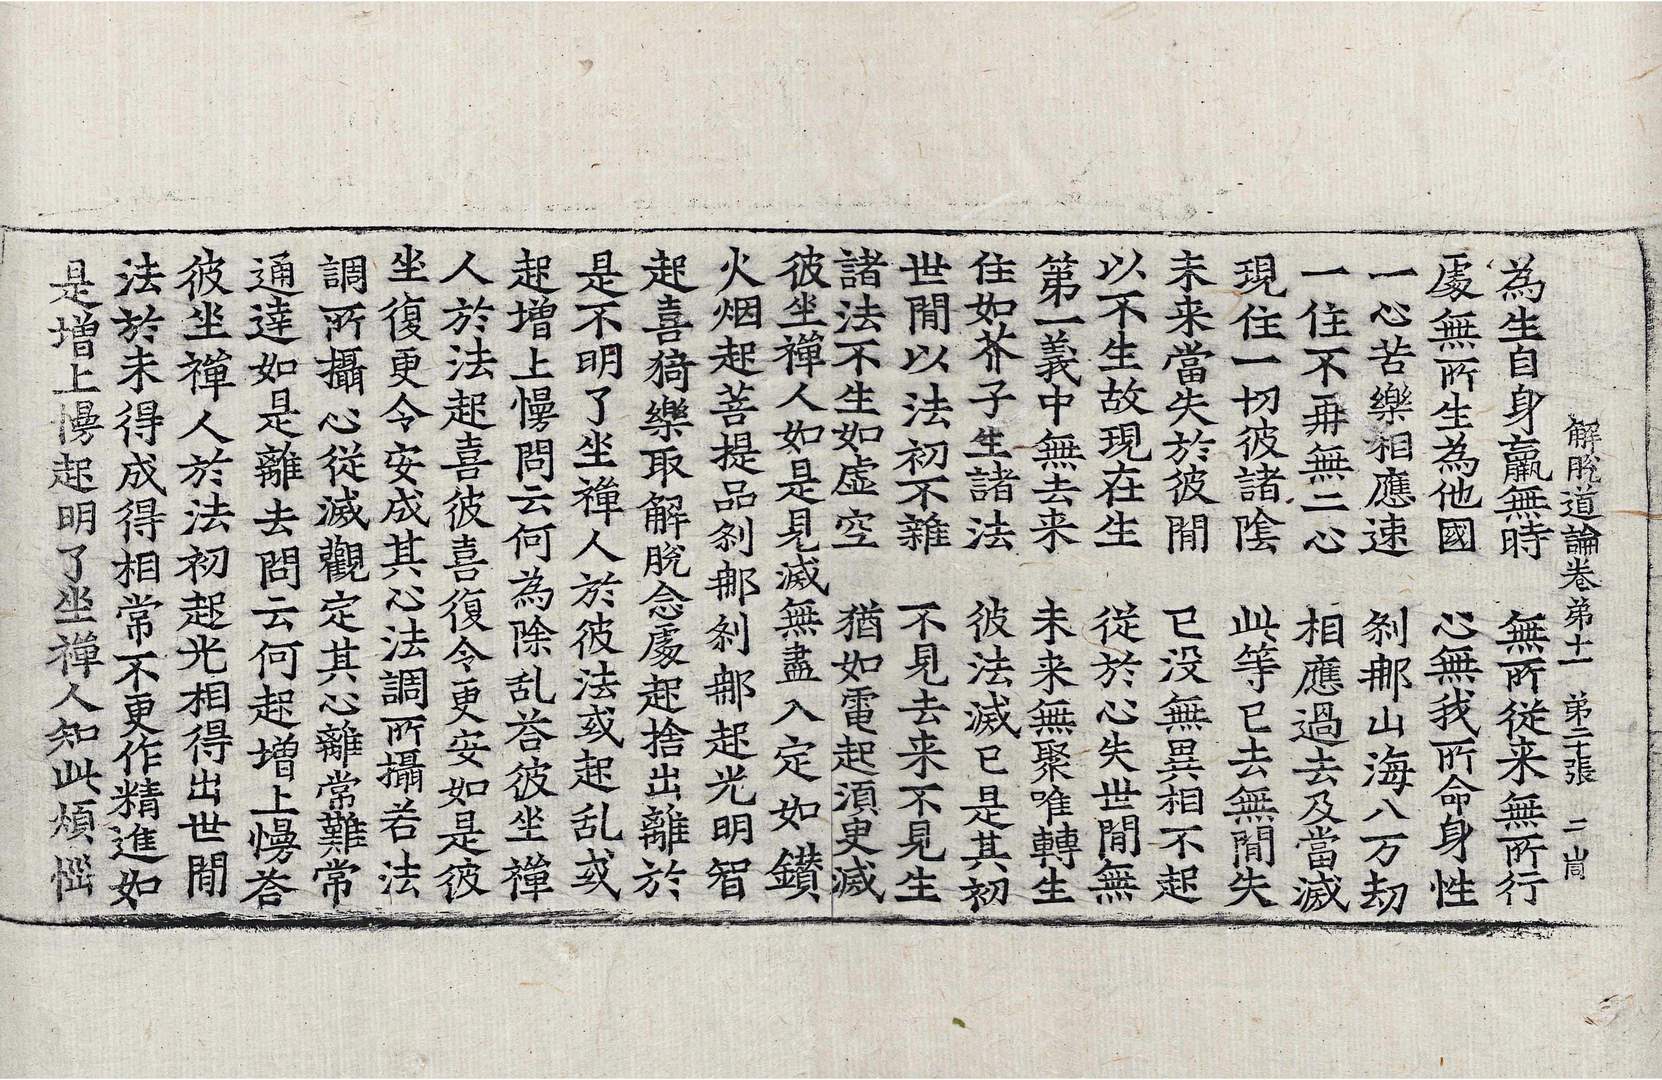 解脫道論卷苐十一　苐二十張　二㞳
為生自身羸無時　無所從来無所行
處無所生為他國　心無我所命身性
一心苦樂相應速　剎郍山海八万劫
一住不再無二心　相應過去及當滅
現住一切彼諸陰　此等已去無閒失
未来當失於彼閒　已没無異相不起
以不生故現在生　從於心失世閒無
第一義中無去来　未来無聚唯轉生
住如芥子生諸法　彼法滅已是其初
世閒以法初不雜　不見去来不見生
諸法不生如虛空　猶如電起湏臾滅
彼坐禪人如是見滅無盡入定如鑚
火烟起菩提品剎郍剎郍起光明智
起喜猗樂取解脫念處起捨出離於
是不明了坐禪人於彼法或起乱或
起增上慢問云何為除乱荅彼坐禪
人於法起喜彼喜復令更安如是彼
坐復更令安成其心法調所攝若法
調所攝心從滅觀定其心離常難常
通達如是離去問云何起增上慢荅
彼坐禪人於法初起光相得出世閒
法於未得成得相常不更作精進如
是增上慢起明了坐禪人知此煩惱